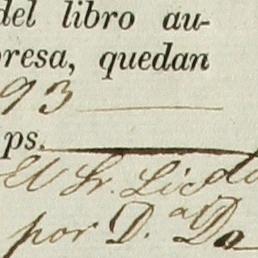 del libro au-
presa, quedan
93
ps.
El Sr. Licdo
por D.ª Do